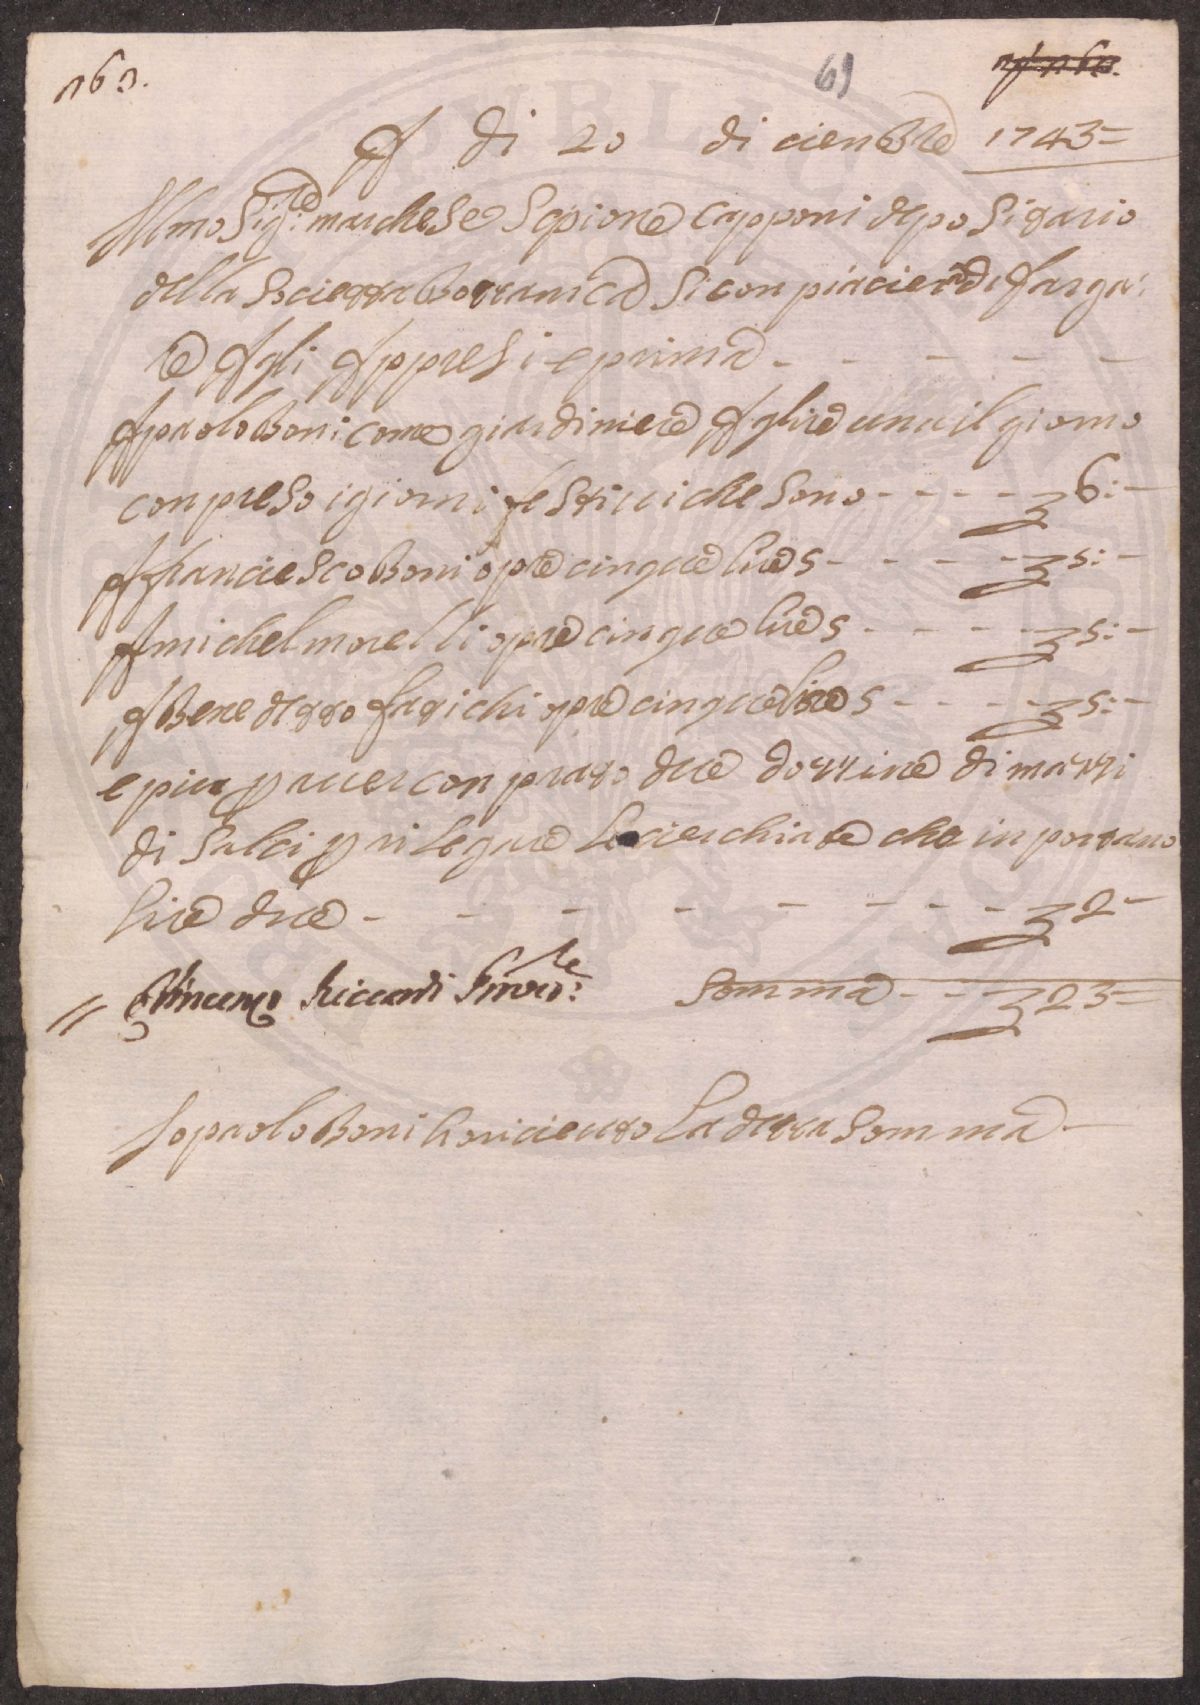 163.
69
A di 20 di cienbre 1743=
Illmo Sig:re marchese Sepione Capponi deposi tario
della Societta Bottanica Si conpiacierà di fargà
e Agli Appresi e prima - - - - -
A paolo Boni come giardiniere A lire una il giorno
conpreso i giorni festivi che sono - - - - £ 6:-
A franciesco Boni opre cinque lire 5 - - - - £ 5:-
A michel morelli opre cinque lire 5 - - - - £ 5:-
A Benedetto farichi opre cinque lire 5 - - - - £ 5:-
e piu p aver conprato due dozzine di mazzi
di Salci p rilegare le cierchiate che inportano
lire due - - - - - - - - £ 2-
// Vincenzo Riccardi Prov:re Somma - - - £ 23=
Io paolo Boni ho riceuto La detta Somma -